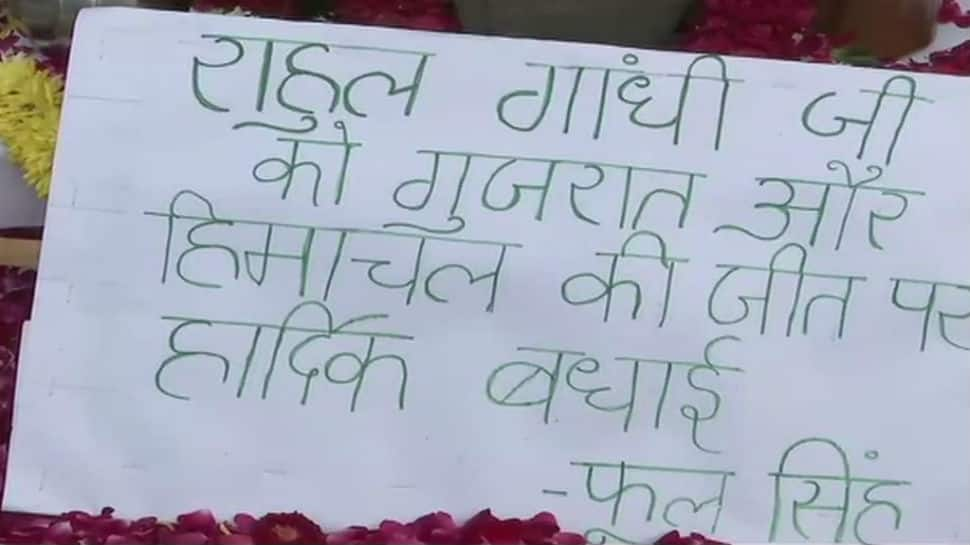 राहुल गांधी जी
को गुजरात और
हिमाचल की जीत पर
हार्दिक बधाई
-फूल सिंह